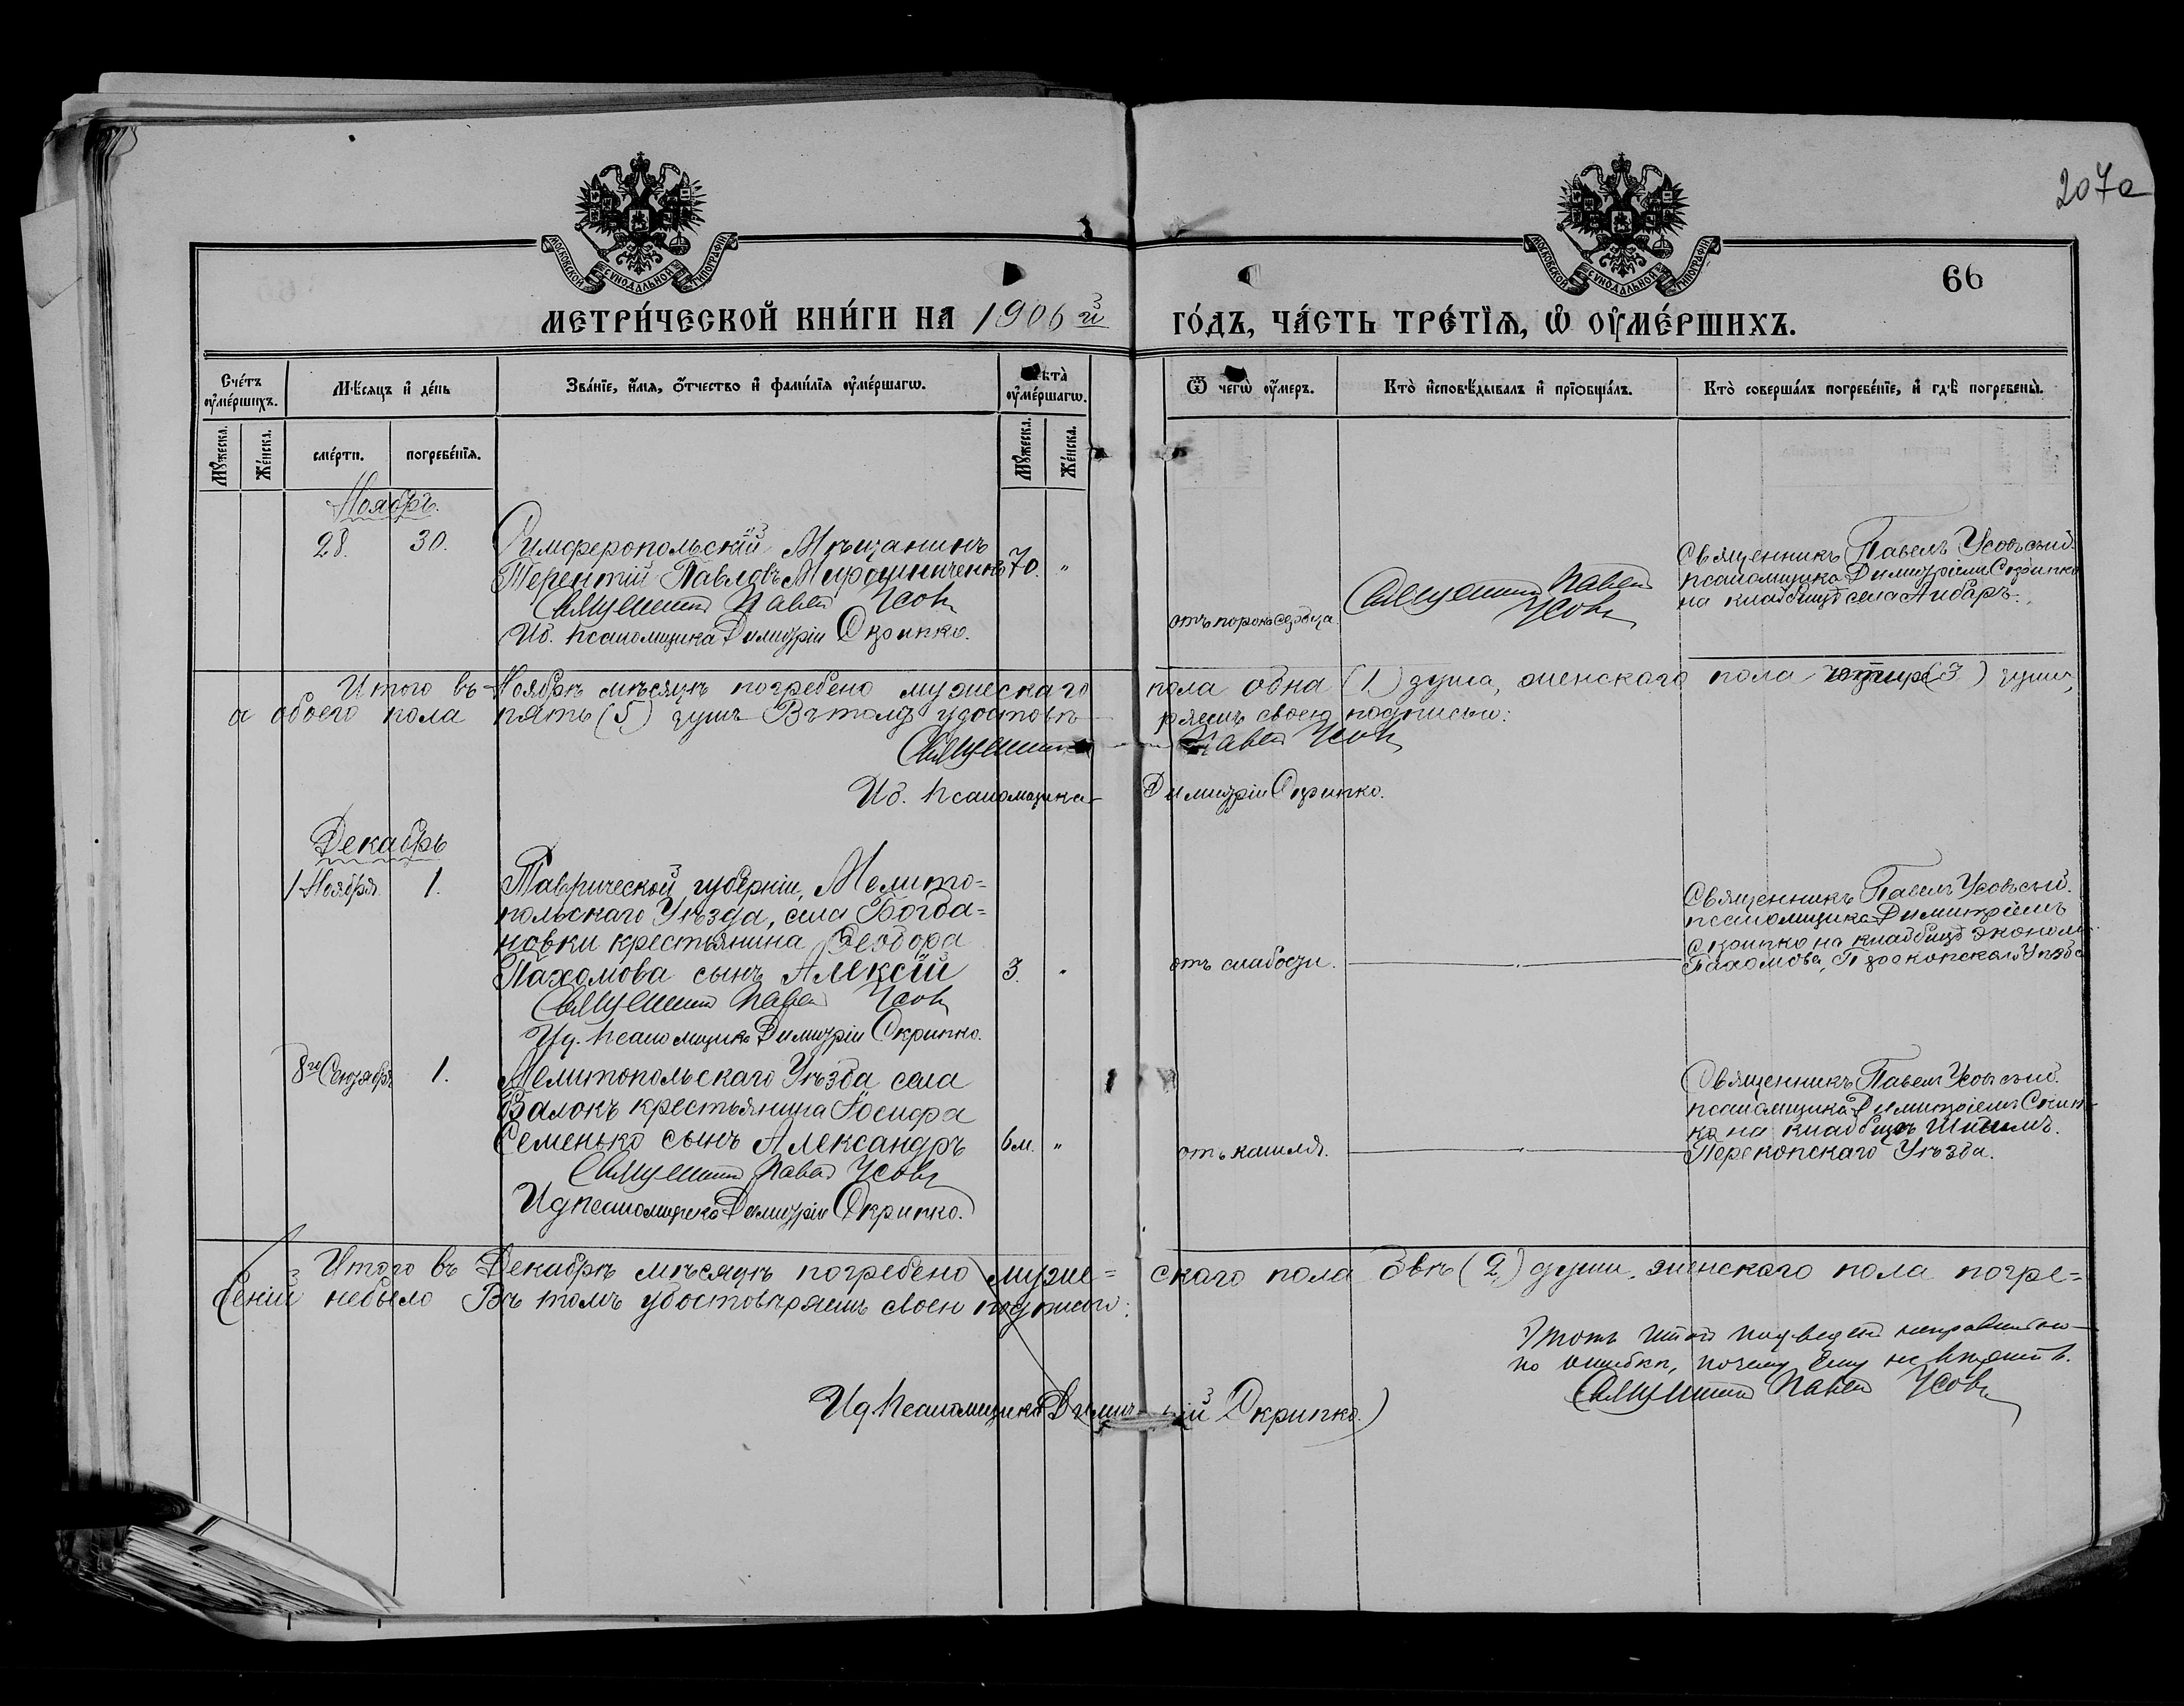 207а
МОСКОВСКОЙ СУНОДАЛЬНОЙ ТИПОГРАФІИ
МОСКОВСКОЙ СУНОДАЛЬНОЙ ТИПОГРАФІИ
66
МЕТРИ́ЧЕСКОЙ КНИ́ГИ НА 1906 й
ГО́ДЪ, ЧА́СТЬ ТРЕ́ТІѦ, Ѡ ОУМЕ́РШИХЪ.
Сче́тъ оуме́ршихъ.
Мѣ́сяцъ и де́нь
Зва́нїе, и́мя, о́тчество и фами́лїя оуме́ршагѡ.
Лѣта̀ оуме́ршагѡ.
Ѿ чегѡ̀ оу́меръ.
Кто̀ исповѣ́дывалъ и прїѡбща́лъ.
Кто̀ соверша́лъ погребе́нїе, и гдѣ̀ погребены̀.
Мꙋ́жеска.
Же́нска.
сме́рти.
погребе́нїя.
Мꙋ́жеска.
Же́нска.
Ноябрь.
28. 30. Симферопольскій Мѣщанинъ
Терентій Павловъ Мирошниченко 70. "
Священникъ Павелъ Усовъ
Ид. псаломщика Димитрій Скрипко.
отъ порока сердца.
Священникъ Павелъ
Усовъ
Священникъ Павелъ Усовъ съ ид.
псаломщика Димитріемъ Скрипко
на кладбищѣ села Айбаръ.
Итого въ Ноябрѣ мѣсяцѣ погребено мужескаго пола одна (1) душа, женскаго пола четыре (3) души,
а обоего пола пять (5) душъ Въ томъ удостовѣряемъ своею подписью:
Священникъ Павелъ Усовъ
Ид. псаломщика Димитрій Скрипко.
Декабрь
1 Ноября. 1. Таврической губерніи, Мелито=
польскаго Уѣзда, села Богда=
новки крестьянина Ѳеодора
Пахомова сынъ Алексій 3. "
Священникъ Павелъ Усовъ
Ид. псаломщика Димитрій Скрипко.
отъ слабости.
Священникъ Павелъ Усовъ съ ид.
псаломщика Димитріемъ
Скрипко на кладбищѣ эконом.
Пахомова, Перекопскаго Уѣзда
8го Сентября 1. Мелитопольскаго Уѣзда села
Балокъ крестьянина Іосифа
Семенько сынъ Александръ 6 м. "
Священникъ Павелъ Усовъ
Ид псаломщика Димитрій Скрипко.
отъ кашля.
Священникъ Павелъ Усовъ съ ид.
псаломщика Димитріемъ Скрип-
ко на кладбищѣ
Перекопскаго Уѣзда.
Итого въ Декабрѣ мѣсяцѣ погребено муже=скаго пола двѣ (2) души, женскаго пола погре=
беній небыло Въ томъ удостовѣряемъ своею подписью:
Этотъ итогъ подведенъ неправильно
по ошибкѣ, почему ему не вѣрить.
Священникъ Павелъ Усовъ
Ид псаломщика Димитрій Скрипко.